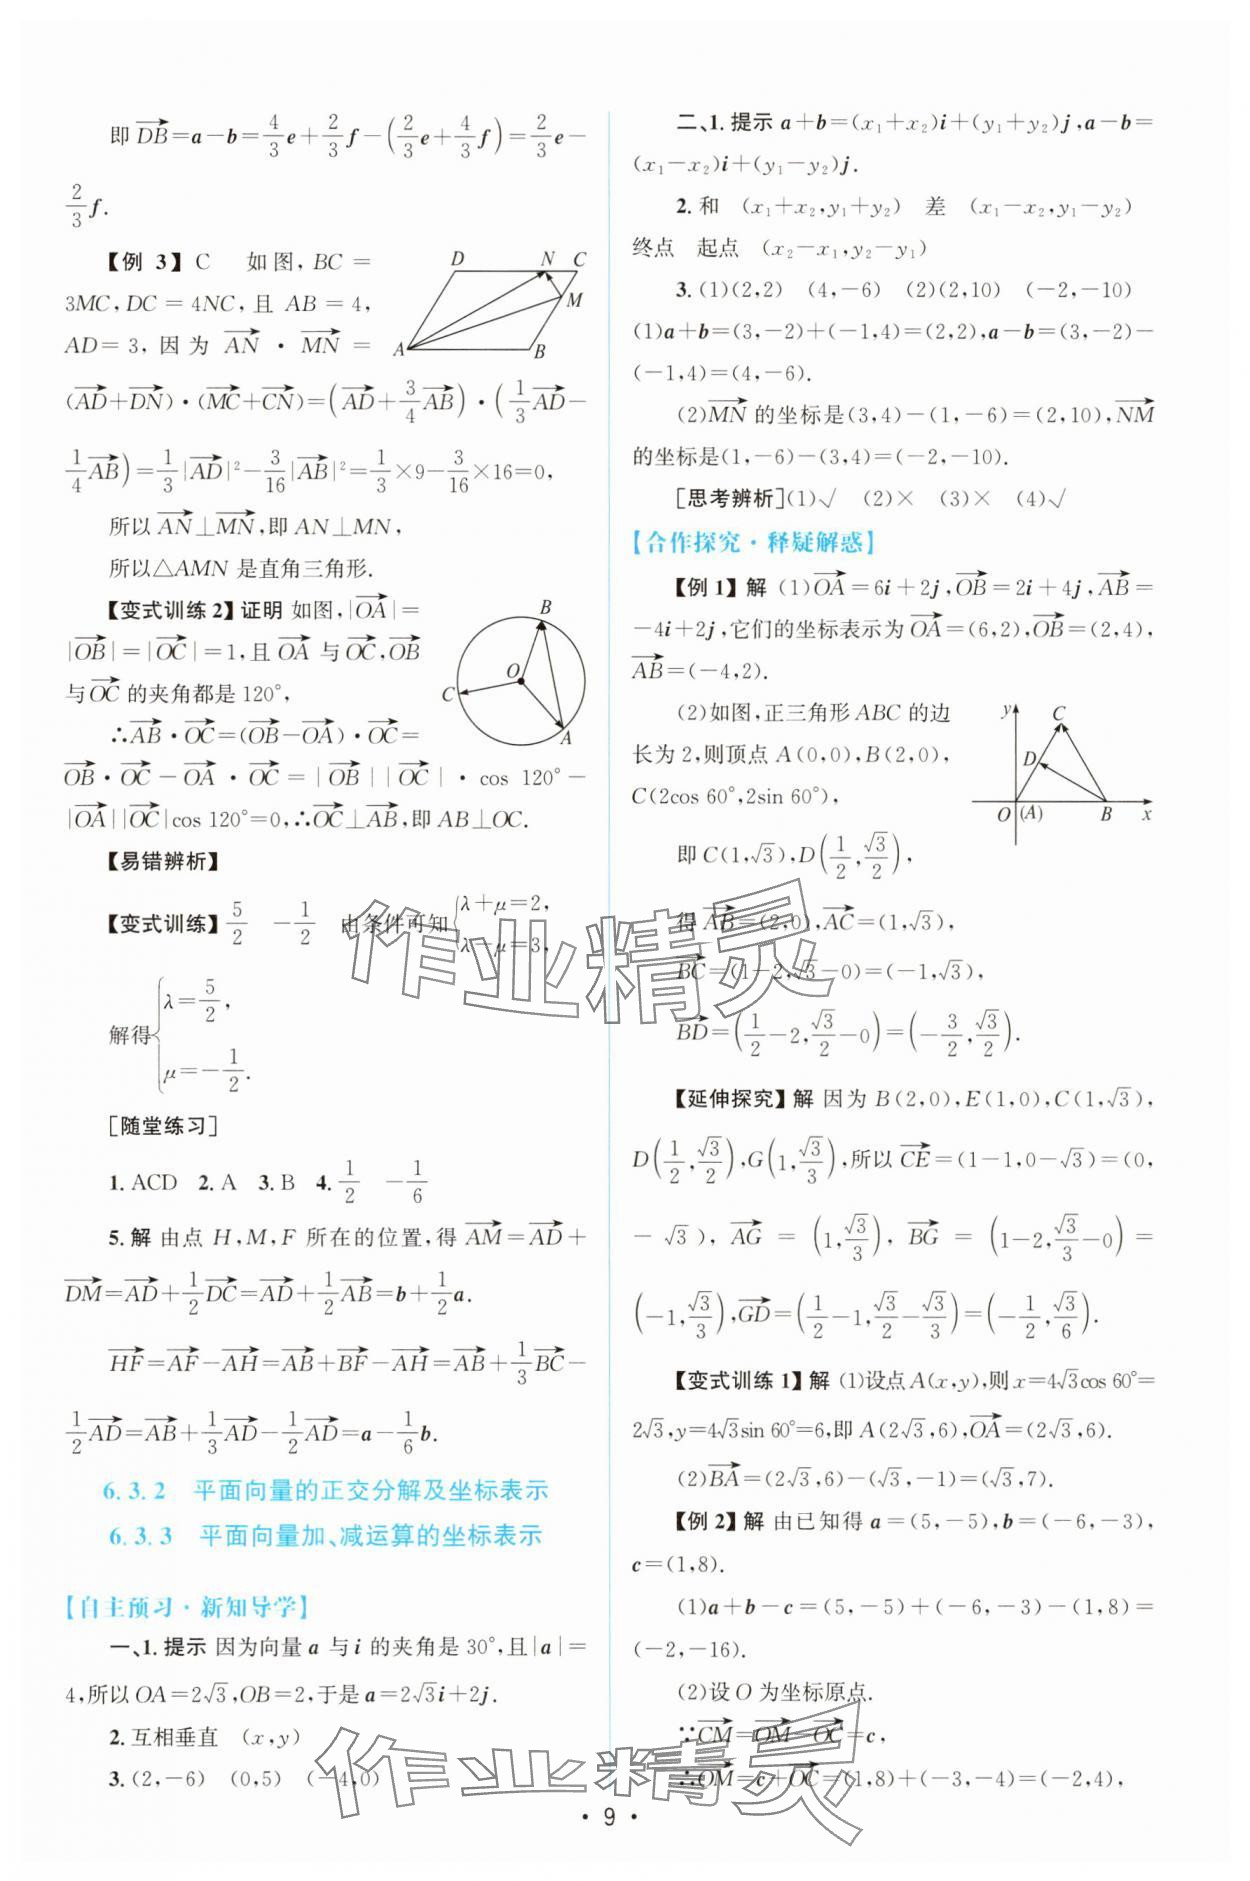 即$\overrightarrow{DB}$=a-b=$\frac{4}{3}$e+$\frac{2}{3}$f-($\frac{2}{3}$e+$\frac{4}{3}$f)=$\frac{2}{3}$e-
$\frac{2}{3}$f.
【例 3】C 如图,BC=
3MC,DC=4NC,且 AB=4,
AD=3,因为 $\overrightarrow{AN}$·$\overrightarrow{MN}$=
D N C M A B
($\overrightarrow{AD}$+$\overrightarrow{DN}$)·($\overrightarrow{MC}$+$\overrightarrow{CN}$)=($\overrightarrow{AD}$+$\frac{3}{4}$$\overrightarrow{AB}$)·($\frac{1}{3}$$\overrightarrow{AD}$-
$\frac{1}{4}$$\overrightarrow{AB}$)=$\frac{1}{3}$|$\overrightarrow{AD}$|²-$\frac{3}{16}$|$\overrightarrow{AB}$|²=$\frac{1}{3}$×9-$\frac{3}{16}$×16=0,
所以 $\overrightarrow{AN}$⊥$\overrightarrow{MN}$,即 AN⊥MN,
所以△AMN 是直角三角形.
【变式训练2】证明 如图,|$\overrightarrow{OA}$|=
|$\overrightarrow{OB}$|=|$\overrightarrow{OC}$|=1,且 $\overrightarrow{OA}$ 与 $\overrightarrow{OC}$,$\overrightarrow{OB}$
与 $\overrightarrow{OC}$ 的夹角都是 120°,
B O C A
∴$\overrightarrow{AB}$·$\overrightarrow{OC}$=($\overrightarrow{OB}$-$\overrightarrow{OA}$)·$\overrightarrow{OC}$=
$\overrightarrow{OB}$·$\overrightarrow{OC}$-$\overrightarrow{OA}$·$\overrightarrow{OC}$=|$\overrightarrow{OB}$||$\overrightarrow{OC}$|·cos 120°-
|$\overrightarrow{OA}$||$\overrightarrow{OC}$|cos 120°=0,∴$\overrightarrow{OC}$⊥$\overrightarrow{AB}$,即 AB⊥OC.
【易错辨析】
【变式训练】$\frac{5}{2}$ -$\frac{1}{2}$ 由条件可知{λ+μ=2, λ-μ=3,
解得{λ=$\frac{5}{2}$, μ=-$\frac{1}{2}$.
[随堂练习]
1. ACD 2. A 3. B 4. $\frac{1}{2}$ -$\frac{1}{6}$
5. 解 由点 H,M,F 所在的位置,得 $\overrightarrow{AM}$=$\overrightarrow{AD}$+
$\overrightarrow{DM}$=$\overrightarrow{AD}$+$\frac{1}{2}$$\overrightarrow{DC}$=$\overrightarrow{AD}$+$\frac{1}{2}$$\overrightarrow{AB}$=b+$\frac{1}{2}$a.
$\overrightarrow{HF}$=$\overrightarrow{AF}$-$\overrightarrow{AH}$=$\overrightarrow{AB}$+$\overrightarrow{BF}$-$\overrightarrow{AH}$=$\overrightarrow{AB}$+$\frac{1}{3}$$\overrightarrow{BC}$-
$\frac{1}{2}$$\overrightarrow{AD}$=$\overrightarrow{AB}$+$\frac{1}{3}$$\overrightarrow{AD}$-$\frac{1}{2}$$\overrightarrow{AD}$=a-$\frac{1}{6}$b.
6.3.2 平面向量的正交分解及坐标表示
6.3.3 平面向量加、减运算的坐标表示
【自主预习·新知导学】
一、1. 提示 因为向量 a 与 i 的夹角是 30°,且|a|=
4,所以 OA=2√3,OB=2,于是 a=2√3i+2j.
2. 互相垂直 (x,y)
3. (2,-6) (0,5) (-4,0)
二、1. 提示 a+b=(x₁+x₂)i+(y₁+y₂)j,a-b=
(x₁-x₂)i+(y₁-y₂)j.
2. 和 (x₁+x₂,y₁+y₂) 差 (x₁-x₂,y₁-y₂)
终点 起点 (x₂-x₁,y₂-y₁)
3. (1)(2,2) (4,-6) (2)(2,10) (-2,-10)
(1)a+b=(3,-2)+(-1,4)=(2,2),a-b=(3,-2)-
(-1,4)=(4,-6).
(2)$\overrightarrow{MN}$ 的坐标是(3,4)-(1,-6)=(2,10),$\overrightarrow{NM}$
的坐标是(1,-6)-(3,4)=(-2,-10).
[思考辨析](1)√ (2)× (3)× (4)√
【合作探究·释疑解惑】
【例 1】解 (1)$\overrightarrow{OA}$=6i+2j,$\overrightarrow{OB}$=2i+4j,$\overrightarrow{AB}$=
-4i+2j,它们的坐标表示为 $\overrightarrow{OA}$=(6,2),$\overrightarrow{OB}$=(2,4),
$\overrightarrow{AB}$=(-4,2).
(2)如图,正三角形 ABC 的边
长为 2,则顶点 A(0,0),B(2,0),
C(2cos 60°,2sin 60°),
y C D O (A) B x
即 C(1,√3),D($\frac{1}{2}$,$\frac{\sqrt{3}}{2}$),
得 $\overrightarrow{AB}$=(2,0),$\overrightarrow{AC}$=(1,√3),
$\overrightarrow{BC}$=(1-2,√3-0)=(-1,√3),
$\overrightarrow{BD}$=($\frac{1}{2}$-2,$\frac{\sqrt{3}}{2}$-0)=(-$\frac{3}{2}$,$\frac{\sqrt{3}}{2}$).
【延伸探究】解 因为 B(2,0),E(1,0),C(1,√3),
D($\frac{1}{2}$,$\frac{\sqrt{3}}{2}$),G(1,$\frac{\sqrt{3}}{3}$),所以 $\overrightarrow{CE}$=(1-1,0-√3)=(0,
-√3),$\overrightarrow{AG}$=(1,$\frac{\sqrt{3}}{3}$),$\overrightarrow{BG}$=(1-2,$\frac{\sqrt{3}}{3}$-0)=
(-1,$\frac{\sqrt{3}}{3}$),$\overrightarrow{GD}$=($\frac{1}{2}$-1,$\frac{\sqrt{3}}{2}$-$\frac{\sqrt{3}}{3}$)=(-$\frac{1}{2}$,$\frac{\sqrt{3}}{6}$).
【变式训练 1】解 (1)设点 A(x,y),则 x=4√3cos 60°=
2√3,y=4√3sin 60°=6,即 A(2√3,6),$\overrightarrow{OA}$=(2√3,6).
(2)$\overrightarrow{BA}$=(2√3,6)-(√3,-1)=(√3,7).
【例 2】解 由已知得 a=(5,-5),b=(-6,-3),
c=(1,8).
(1)a+b-c=(5,-5)+(-6,-3)-(1,8)=
(-2,-16).
(2)设 O 为坐标原点.
∵$\overrightarrow{CM}$=$\overrightarrow{OM}$-$\overrightarrow{OC}$=c,
∴$\overrightarrow{OM}$=c+$\overrightarrow{OC}$=(1,8)+(-3,-4)=(-2,4),
· 9 ·
作业精灵
作业精灵